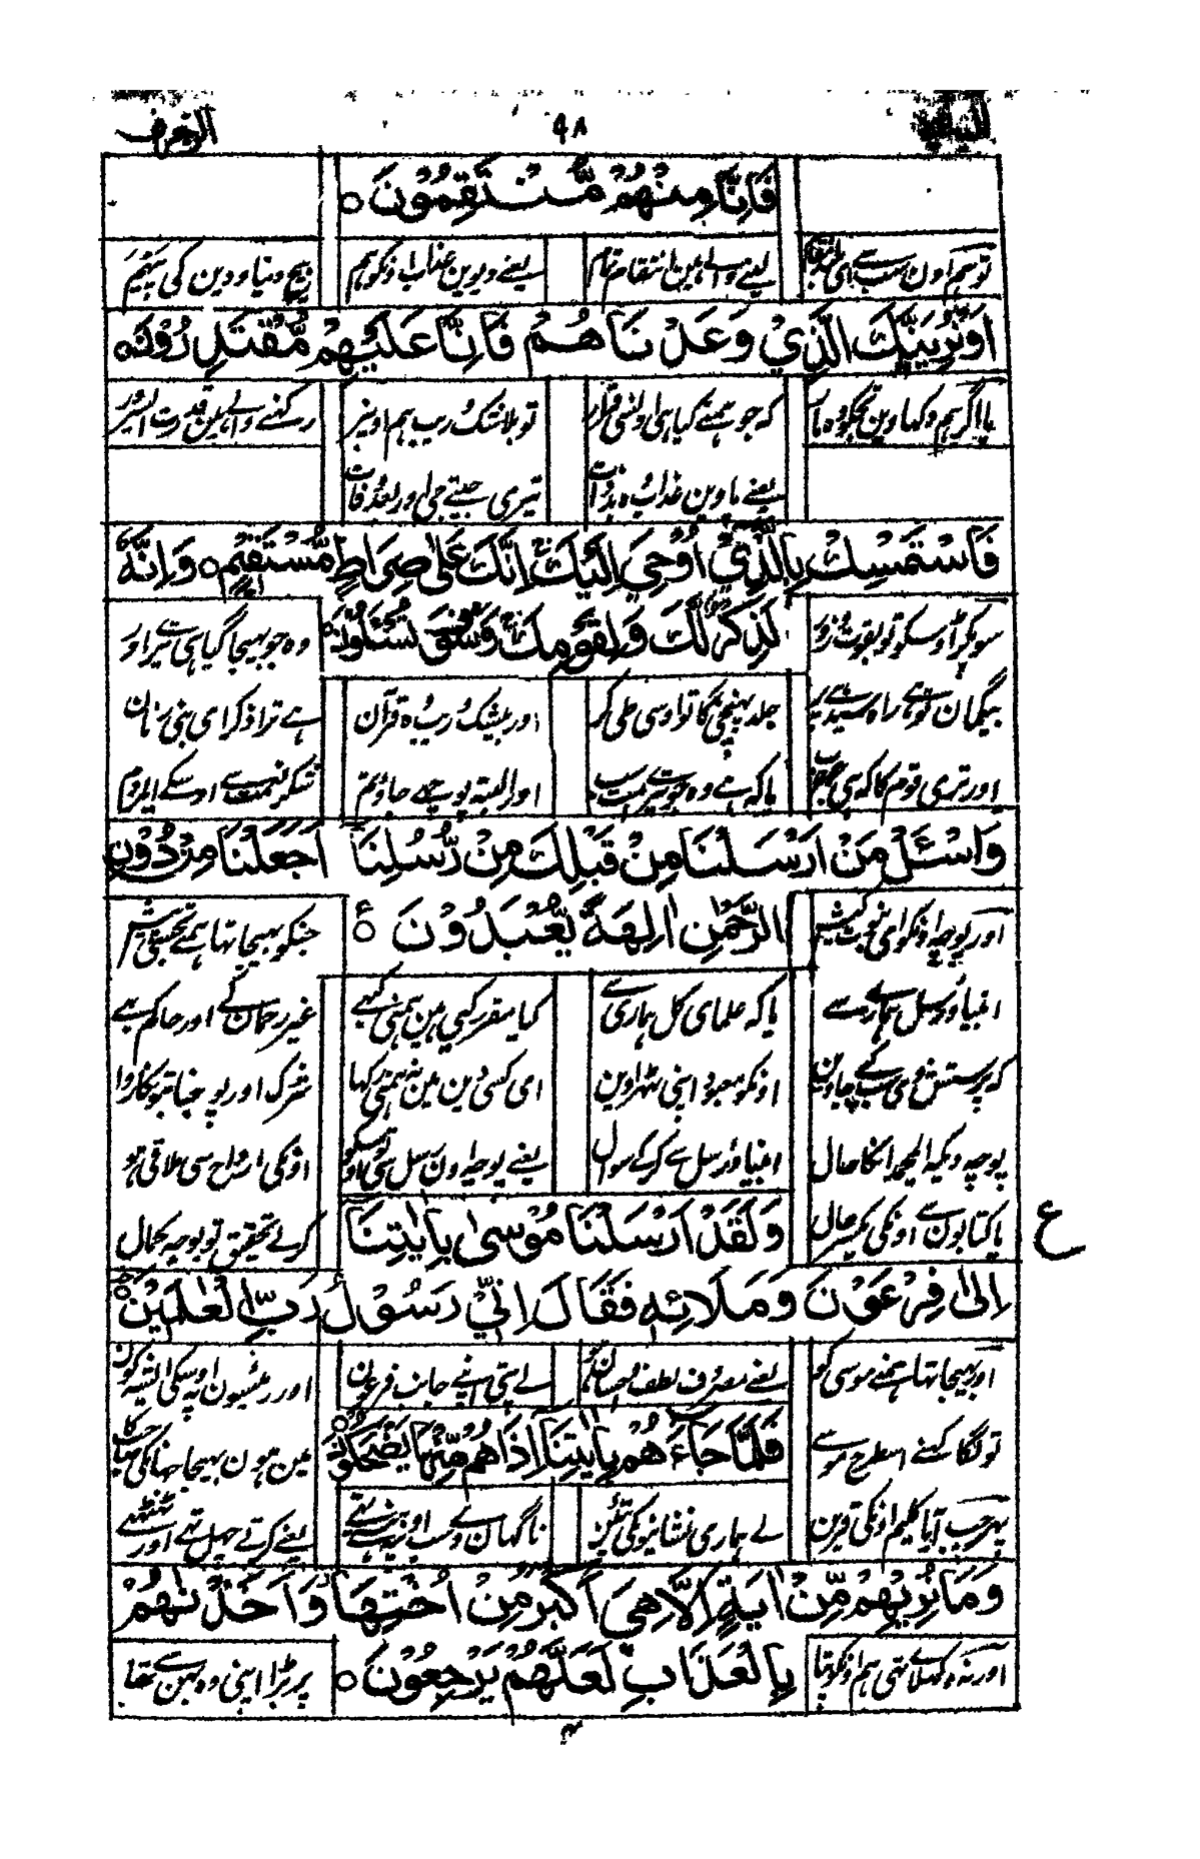 الزخرف
۹۸
فَاِنَّا مِنْهُمْ مُّنْتَقِمُوْنَ ○
تو ہم اون سب سے
لینے والے ہین انتقام تمام
یعنے دیوین عذاب اونکو ہم
بیچ دنیا و دین کی پیہم
اَوْ نُرِيَنَّكَ الَّذِيْ وَعَدْنَاهُمْ فَاِنَّا عَلَيْهِمْ مُّقْتَدِرُوْنَ ○
یا اگر ہم دکھاوین تجکو وہ
کہ جو ہمنے کیا ہی
تو بلا شک و ریب ہم اوپر
رکھنے والے ہین قدرت
یعنے ماوین عذاب
تیری جیتے جی اور بعد وفات
فَاسْتَمْسِكْ بِالَّذِيْ اُوْحِيَ اِلَيْكَ اِنَّكَ عَلٰى صِرَاطٍ مُّسْتَقِيْمٍ ○ وَاِنَّهٗ
لَذِكْرٌ لَّكَ وَلِقَوْمِكَ وَسَوْفَ تُسْئَلُوْنَ ○
سو پکڑ اوسکو تو بقوت و زور
وہ جو بھیجا گیا ہی تیری اور
بیگمان تو ہے راہ سیدھے پر
جلد پہنچیگا تو اوسی طی کر
اور بیشک و ریب وہ قرآن
ہے ترا ذکر ای نبی زمان
اور تری قوم کا کہ ہی
یا کہ ہے وہ
اور البتہ پوچھے جاؤ تم
شکر نعمت سے اوسکے
وَاسْئَلْ مَنْ اَرْسَلْنَا مِنْ قَبْلِكَ مِنْ رُّسُلِنَا اَجَعَلْنَا مِنْ دُوْنِ
الرَّحْمٰنِ اٰلِهَةً يُّعْبَدُوْنَ ○
اور پوچھ اونکو ای نبوت کیش
جنکو بھیجا تھا ہمنے تجھسی پیش
انبیا و رسل ہمارے سے
یا کہ علمای کل ہماری سے
کیا مقرر کیے ہین ہمنی کہے
غیر رحمان کے اور حاکم ہے
کہ پرستش وی سب کیے جاوین
اونکو معبود اپنی ٹھہراوین
ای کسی دین مین نہ ہمنی رکہا
شرک اور پوجنا بتونکا روا
پوچھ دیکہ المحمد انکا حال
انبیا و رسل سے کرکے سوال
یعنے پوچھ اون رسل سی
اونکی ارواح سی ملاقی ہو
یا کتابون سے اونکی
کرلے تحقیق تو بوجہ کمال
وَلَقَدْ اَرْسَلْنَا مُوْسٰى بِاٰيٰتِنَا
ع
اِلٰى فِرْعَوْنَ وَمَلَائِهٖ فَقَالَ اِنِّيْ رَسُوْلُ رَبِّ الْعٰلَمِيْنَ ○
اور بھیجا تھا ہمنے موسی کو
یعنے مصروف لطف و احسان
لے نشی اپنے جانب فرعون
اور رئیسون اوسکی
تو لگا کہنے اسطرح
مین ہون بھیجا
فَلَمَّا جَآءَهُمْ بِاٰيٰتِنَا اِذَا هُمْ مِّنْهَا يَضْحَكُوْنَ ○
پھر جب آیا کلیم اونکی قرین
لے ہماری نشانیونکی تئین
ناگہان وے سب
یعنے کرتے جہل تہے اور ٹھٹھے
وَمَا نُرِيْهِمْ مِّنْ اٰيَةٍ اِلَّا هِيَ اَكْبَرُ مِنْ اُخْتِهَا وَاَخَذْنٰهُمْ
بِالْعَذَابِ لَعَلَّهُمْ يَرْجِعُوْنَ ○
اور نہ دکھلاتی تہی ہم اونکو
پر بڑا اپنی وہ بہن سے تھا